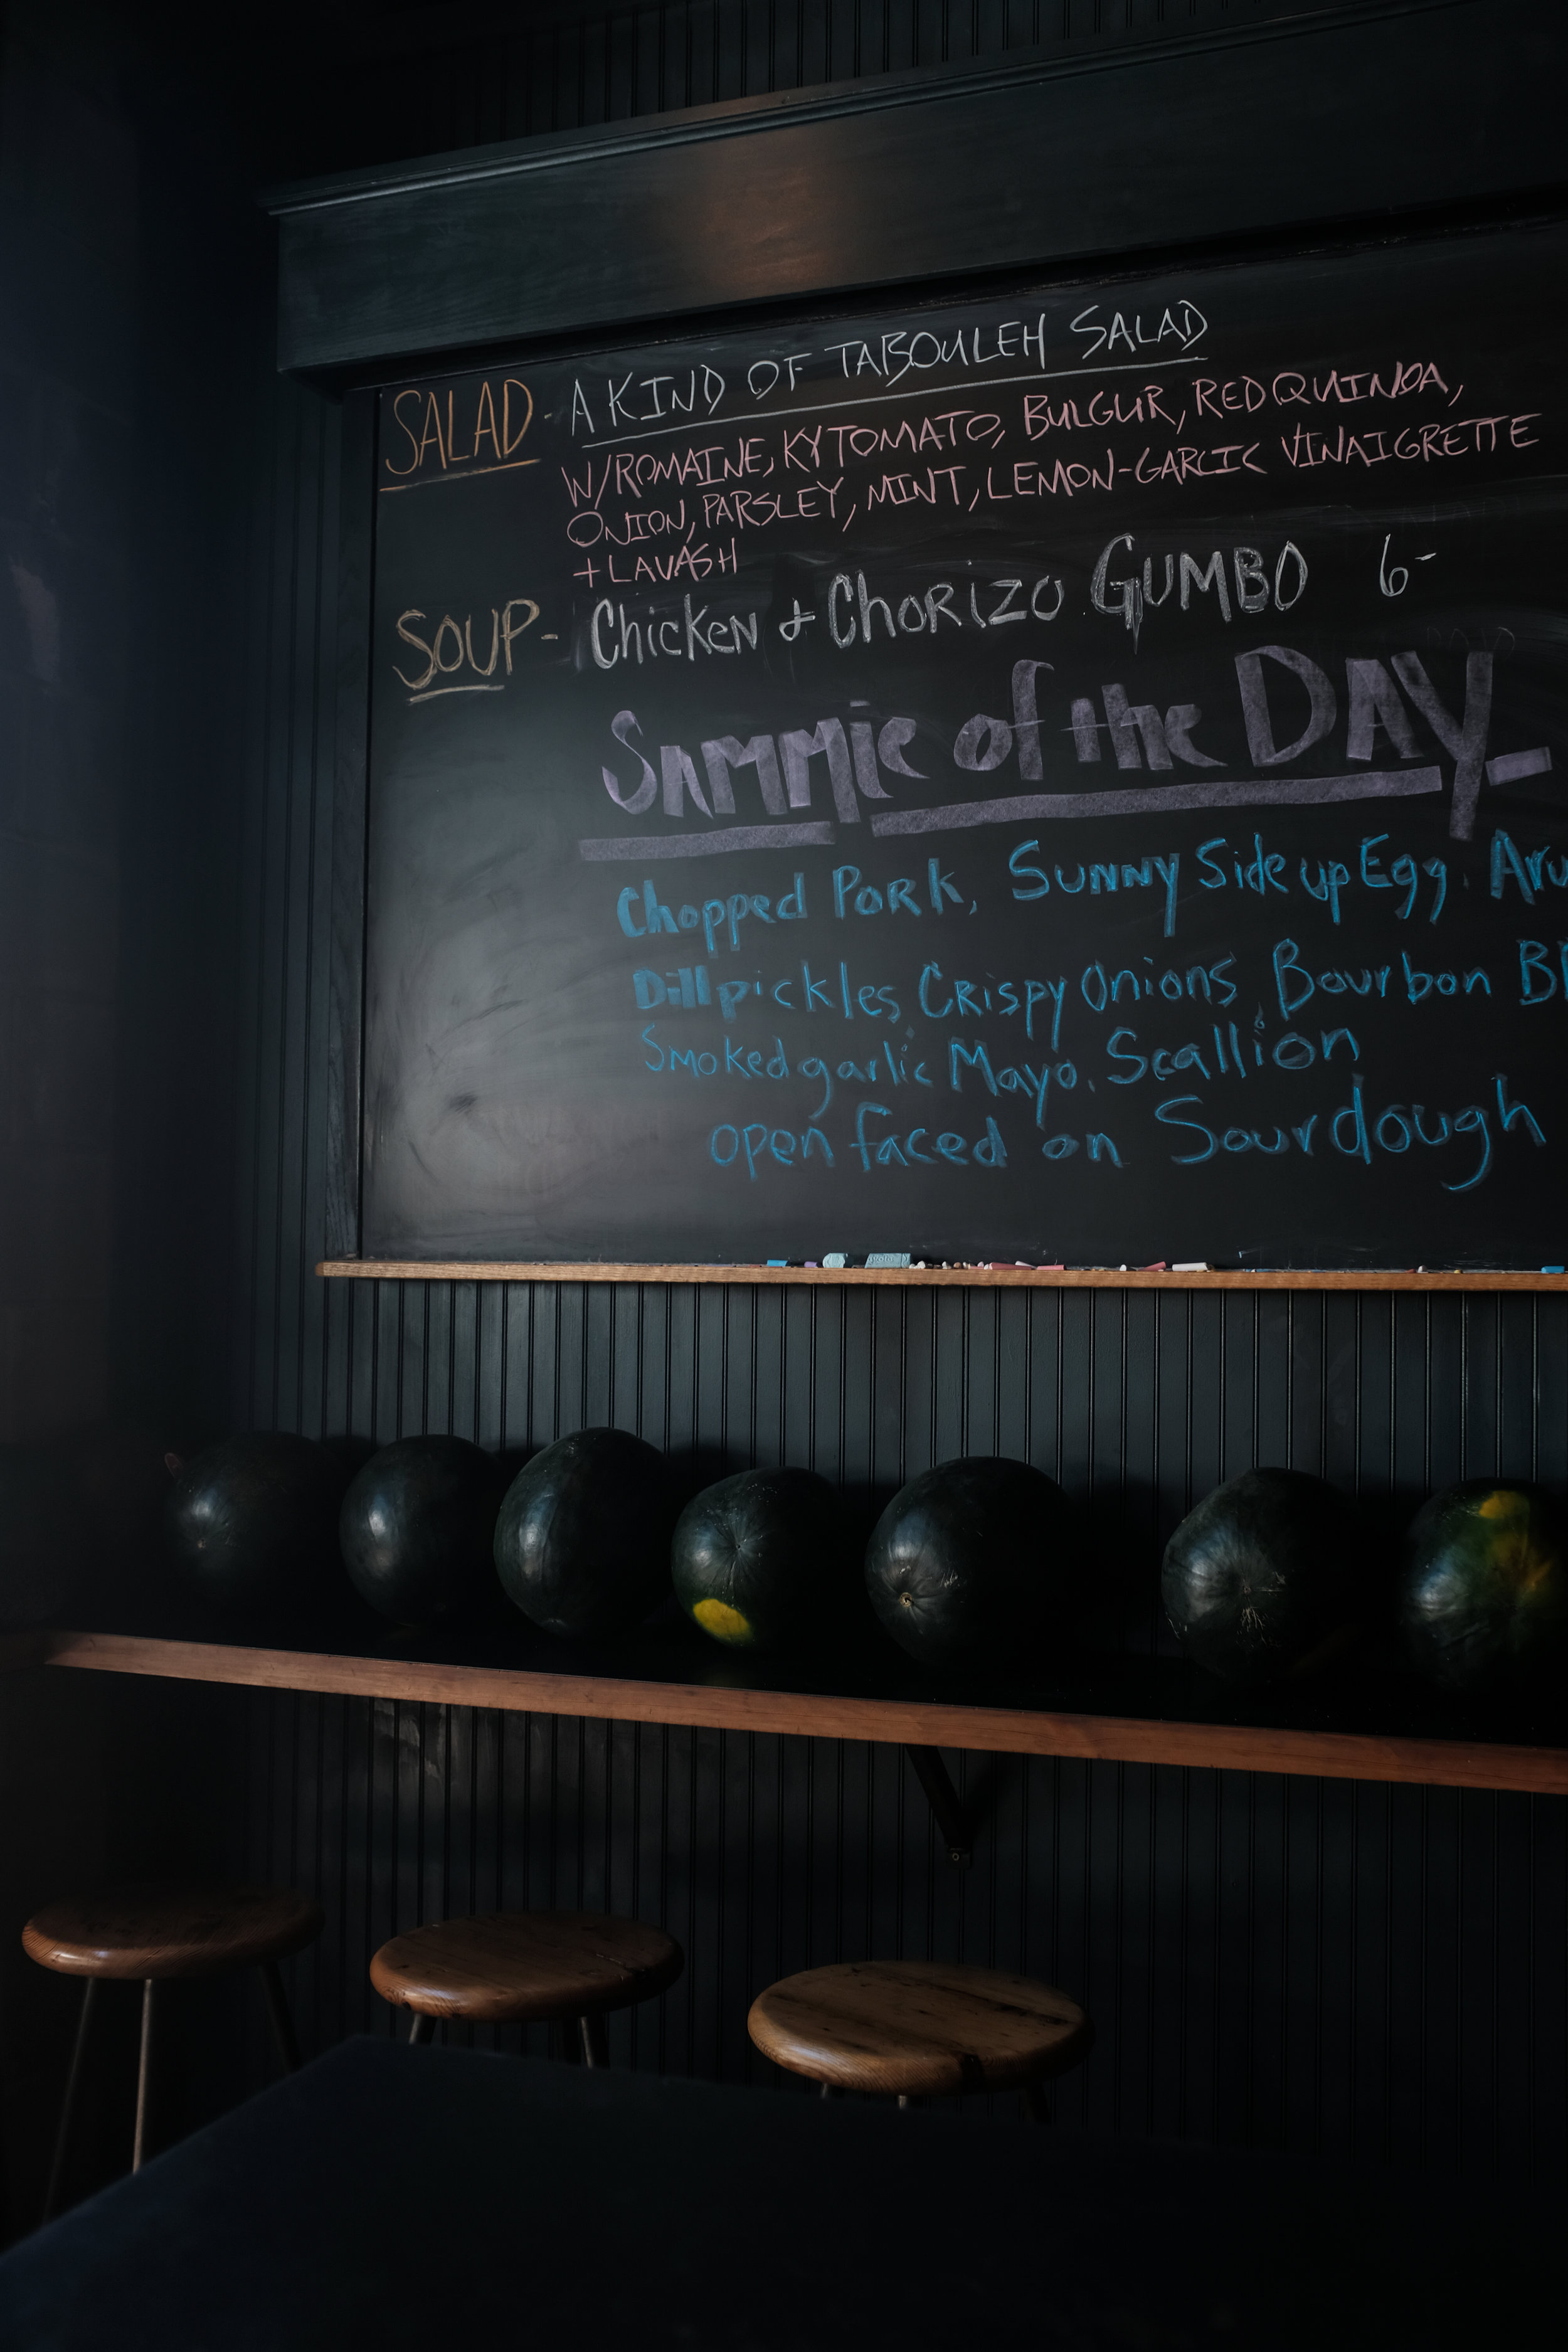 SALAD - A KIND OF TABOULEH SALAD
W/ROMAINE, KY TOMATO, BULGUR, RED QUINOA,
ONION, PARSLEY, MINT, LEMON-GARLIC VINAIGRETTE
+ LAVASH
SOUP - Chicken & Chorizo GUMBO 6-
Sammie of the DAY
Chopped Pork, Sunny Side up Egg,
Dill pickles, Crispy Onions, Bourbon
Smoked garlic Mayo, Scallion
open faced on Sourdough